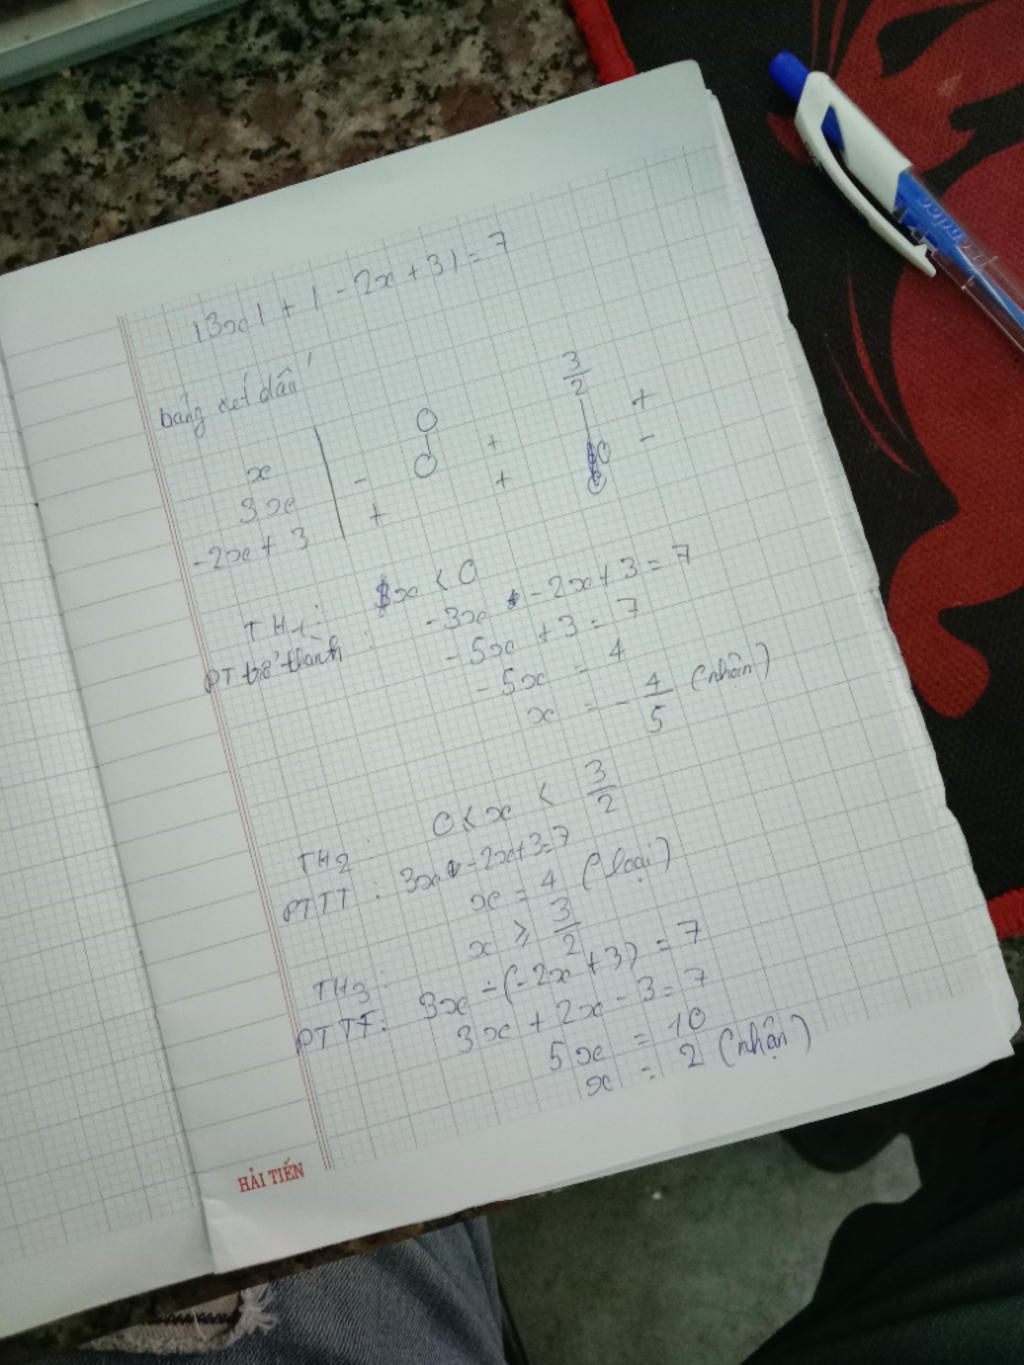 |3x| + |-2x + 3| = 7
bảng xét dấu
x 0 3/2
3x - 0 + +
-2x + 3 + + 0 -
TH1: x < 0
PT trở thành: -3x - 2x + 3 = 7
-5x + 3 = 7
-5x = 4
x = -4/5 (nhận)
TH2: 0 ≤ x < 3/2
PTTT: 3x - 2x + 3 = 7
x = 4 (loại)
TH3: x ≥ 3/2
PTTT: 3x - (-2x + 3) = 7
3x + 2x - 3 = 7
5x = 10
x = 2 (nhận)
HẢI TIẾN